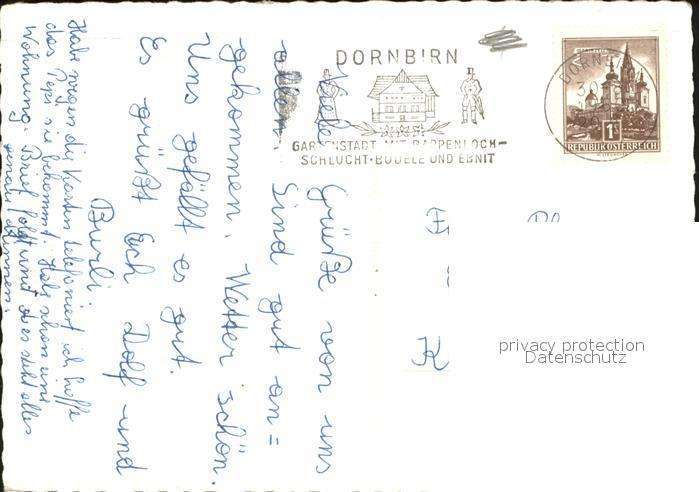 DORNBIRN
GARTENSTADT MIT RAPPENLOCH-
SCHLUCHT·BÖDELE UND EBNIT
DORNB
1S
REPUBLIK ÖSTERREICH
Viele Grüße von uns
allen. Sind gut an=
gekommen. Wetter schön.
Uns gefällt es gut.
Es grüßt Euch Dolf und
Burli.
Habe wegen die Karten telefoniert ich hoffe
das Pepi sie bekommt. Habe schon eine
Wohnung. Brief folgt und da es steht alles
genau drinnen.
privacy protection
Datenschutz